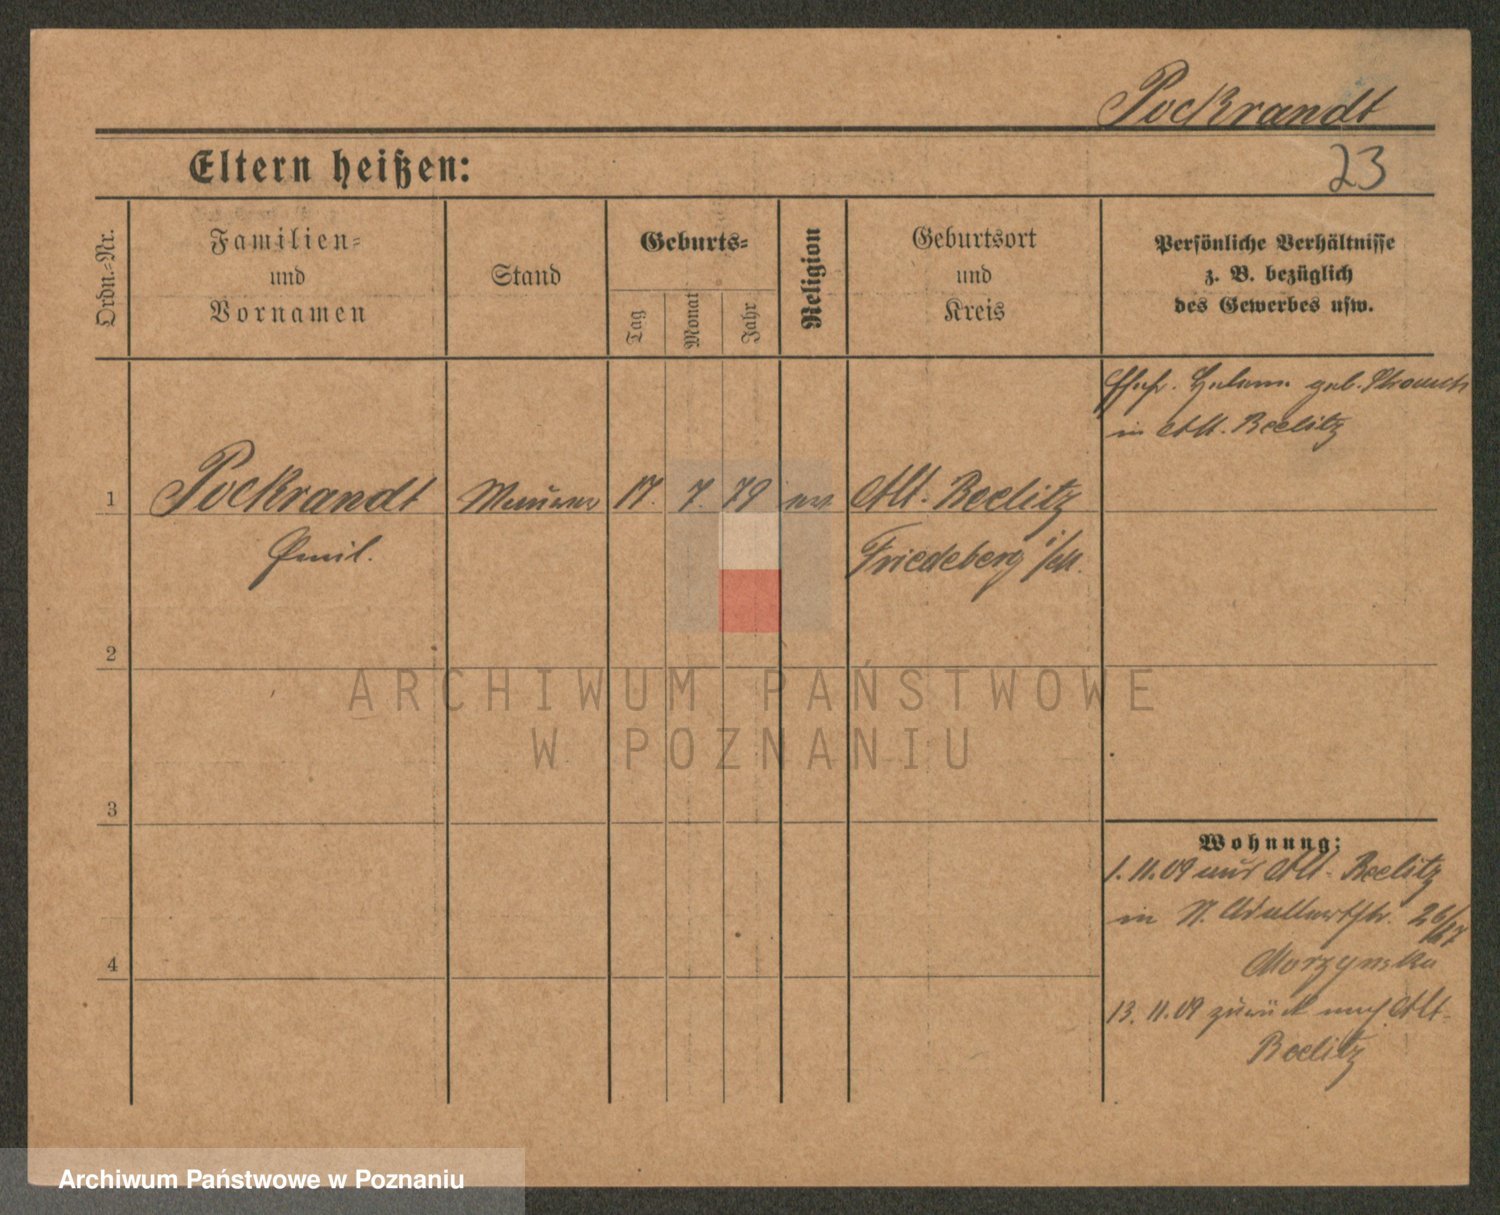 Pockrandt
Eltern heißen:
23
Ordn.=Nr.
Familien=
und
Vornamen
Stand
Geburts=
Tag
Monat
Jahr
Religion
Geburtsort
und
Kreis
Persönliche Verhältnisse
z. B. bezüglich
des Gewerbes usw.
geb.
in Alt. Beelitz
1
Pockrandt
Maurer
17. 7. 79
ev.
Alt-Beelitz
Emil.
Friedeberg
2
3
4
Wohnung:
1.11.09 aus Alt-Beelitz
in St. Adalbertstr. 26/27
13.11.09 zurück nach Alt-
Beelitz
ARCHIWUM PAŃSTWOWE
W POZNANIU
Archiwum Państwowe w Poznaniu